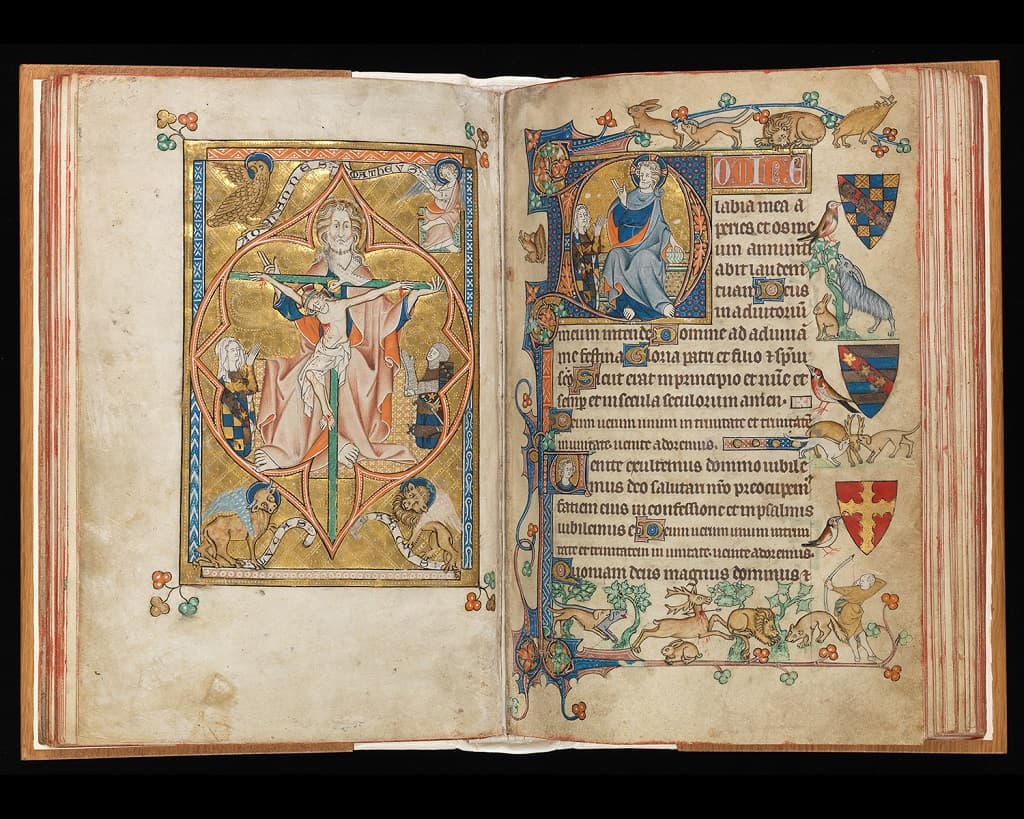 IOHANNES
MATHEVS
LVCAS
MARCVS
DOINE
labia mea a
peries et os me
um annunti
abit laudem
tuam Deus
in adiutoriū
meum intende Domine ad adiuuā
me festina Gloria patri et filio ⁊ spūi
scō Sicut erat in principio et nūc et
semp et in secula seculorum amen.
Deum uerum unum in trinitate et trinitatē
in unitate uenite adoremus.
Uenite exultemus domino iubile
mus deo salutari nrō preocupem
faciem eius in confessione et in psalmis
iubilemus ei Deum uerum unum in trini
tate et trinitatem in unitate uenite adoremus.
Quoniam deus magnus dominus ⁊